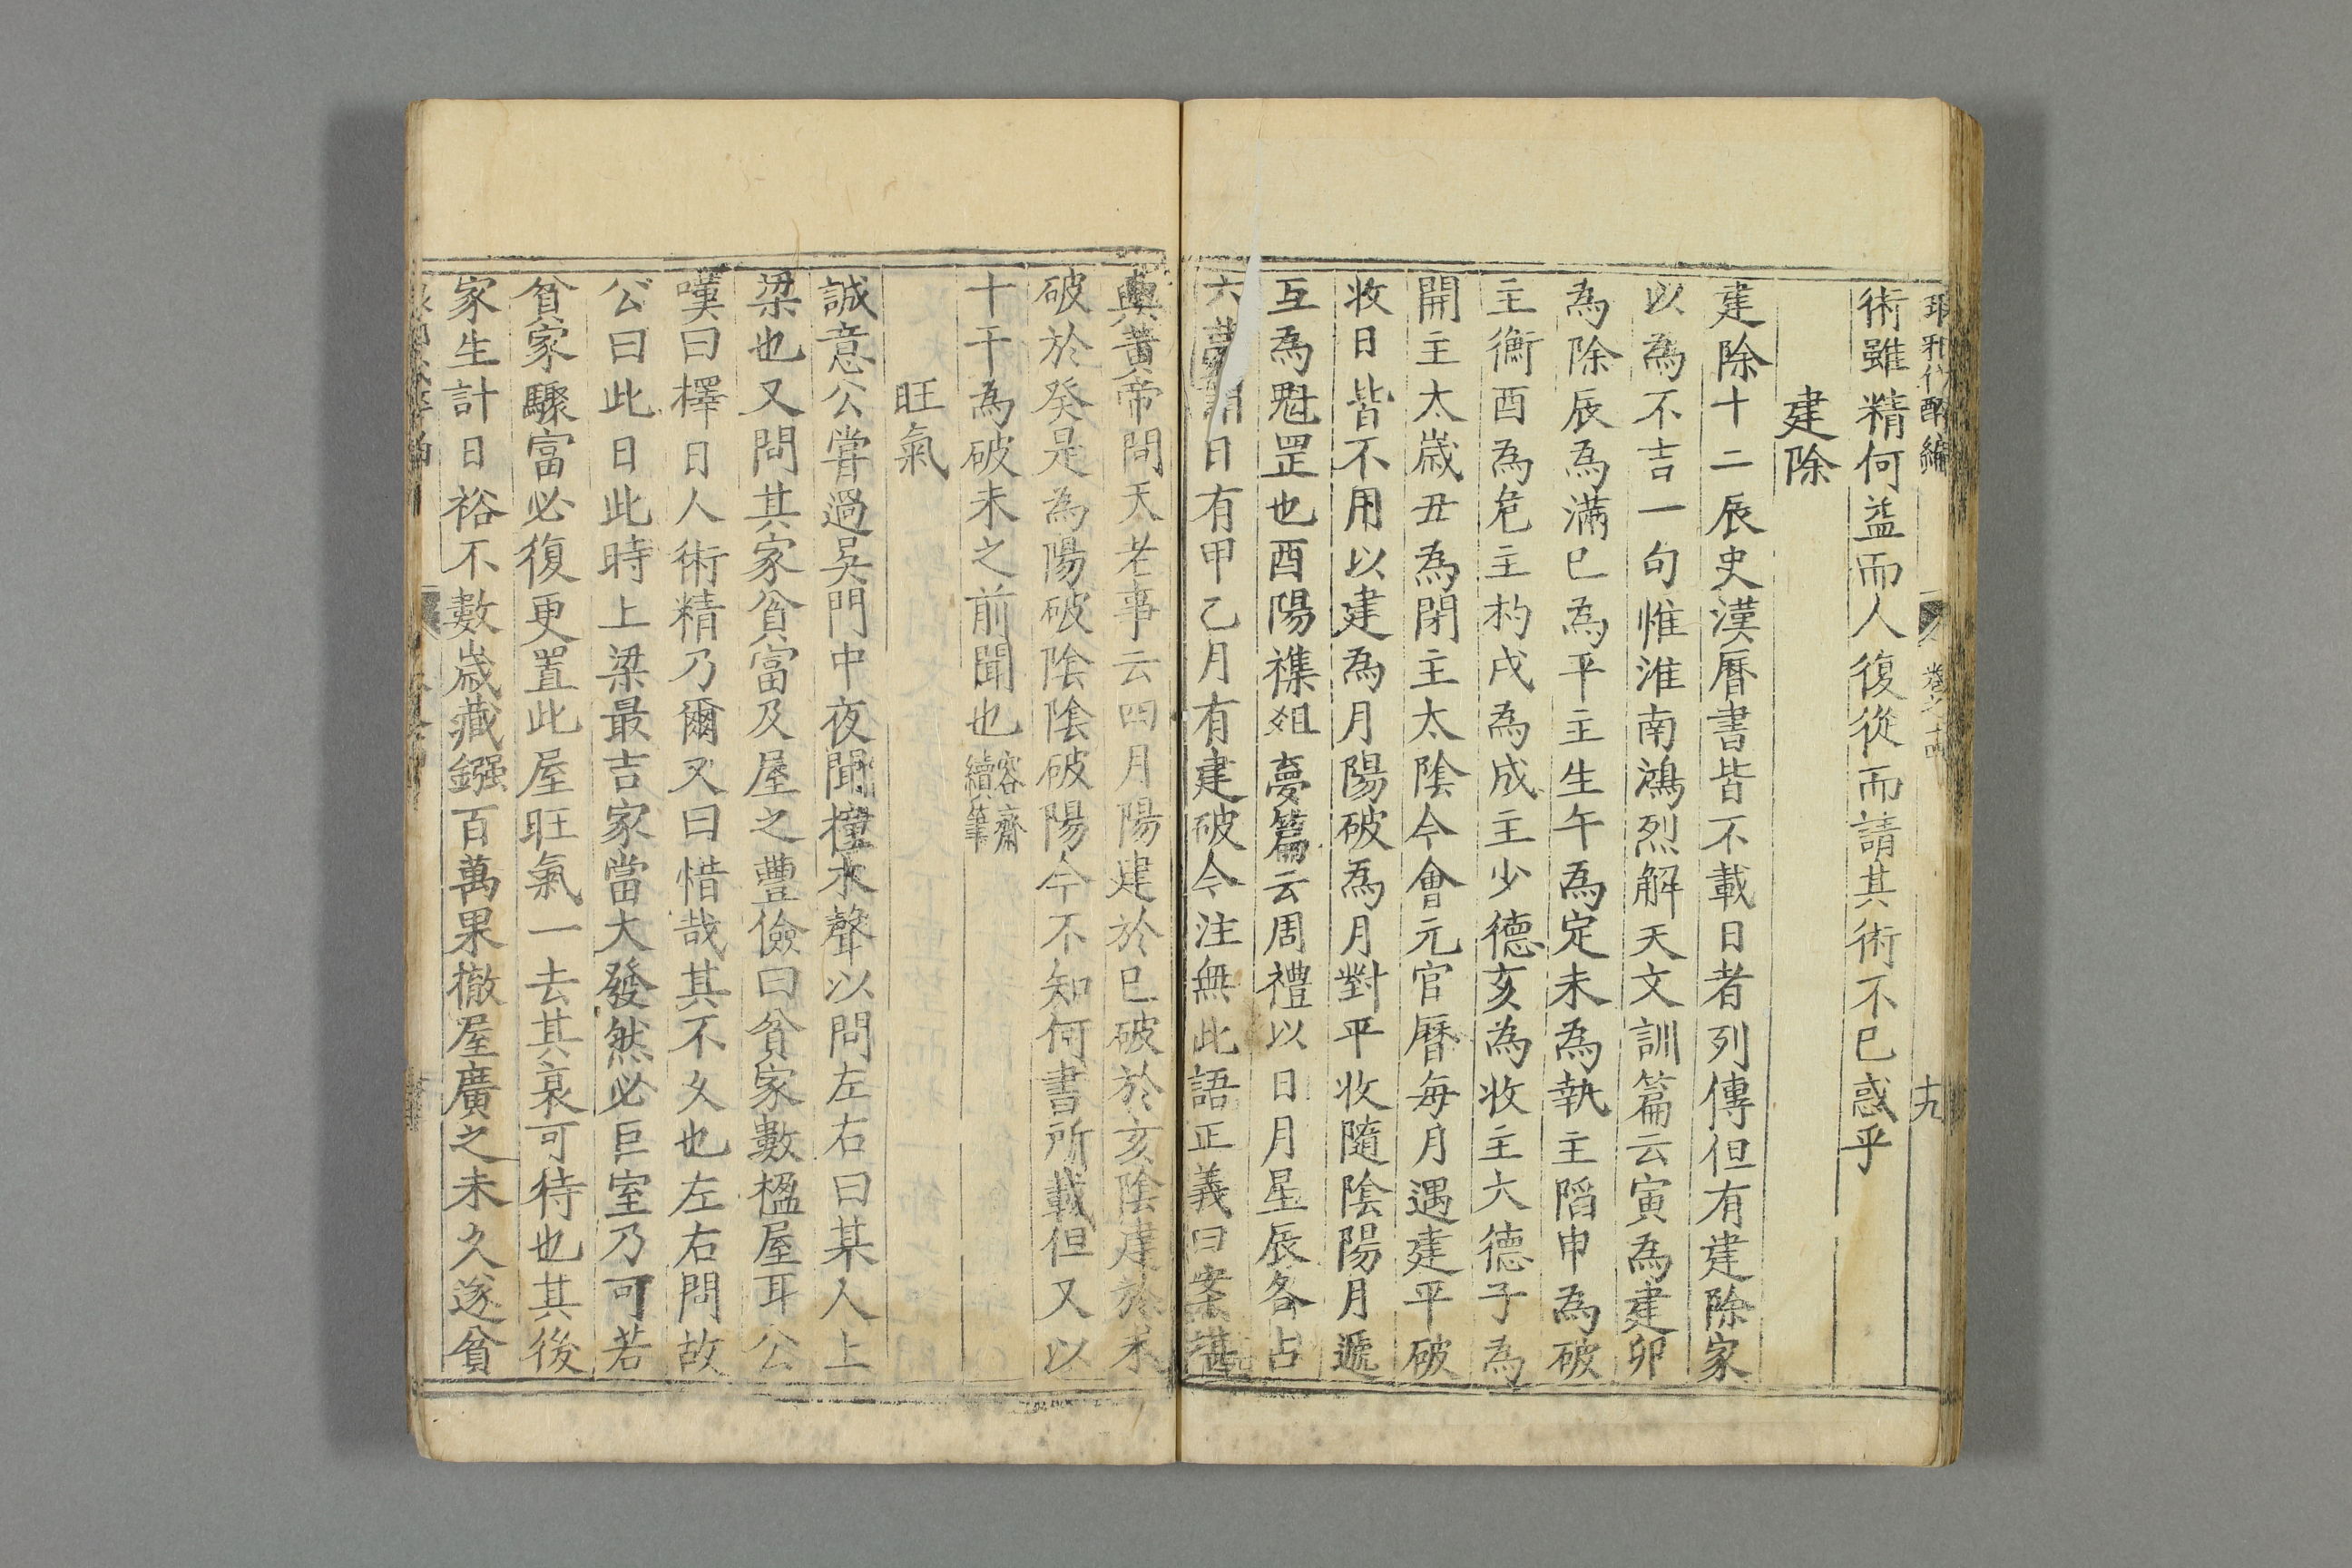 琅邪代醉編 卷之十四 十九
術雖精何益而人復從而請其術不已惑乎
建除
建除十二辰史漢曆書皆不載日者列傳但有建除家
以為不吉一句惟淮南鴻烈解天文訓篇云寅為建卯
為除辰為滿巳為平主生午為定未為執主陷申為破
主衡酉為危主杓戌為成主少德亥為收主大德子為
開主太歲丑為閉主太陰今會元官曆每月遇建平破
收日皆不用以建為月陽破為月對平收隨陰陽月遞
互為魁罡也酉陽襍俎夢篇云周禮以日月星辰各占
六夢謂日有甲乙月有建破今注無此語正義曰案堪
輿黃帝問天老事云四月陽建於巳破於亥陰建於未
破於癸是為陽破陰陰破陽今不知何書所載但又以
十干為破未之前聞也容齋續筆
旺氣
誠意公嘗過吳門中夜聞撞木聲以問左右曰某人上
梁也又問其家貧富及屋之豐儉曰貧家數楹屋耳公
嘆曰擇日人術精乃爾又曰惜哉其不久也左右問故
公曰此日此時上梁最吉家當大發然必巨室乃可若
貧家驟富必復更置此屋旺氣一去其衰可待也其後
家生計日裕不數歲藏鏹百萬果撤屋廣之未久遂貧